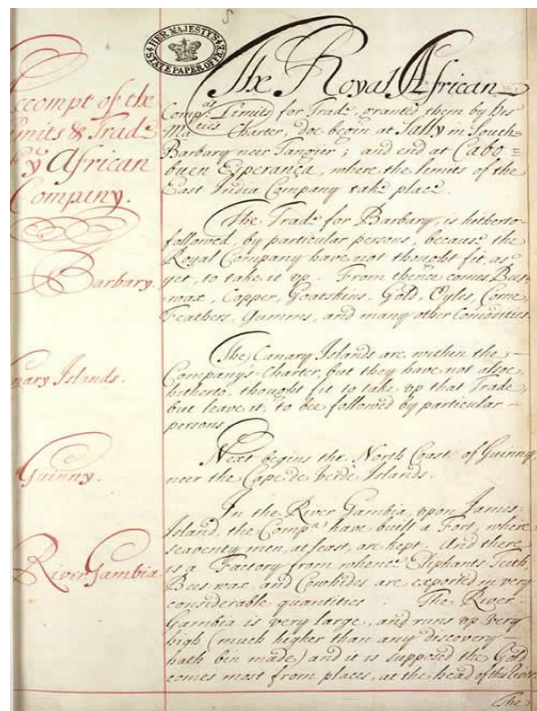 HER MAJESTY'S
STATE PAPER OFFICE
The Royal African
Compas Limits for Trade, granted them by His
Maties Charter, doe begin at Sally in South
Barbary neer Tangier; and end at Cabo =
buen Esperança, where the limits of the
East India Company take place.
The Trade for Barbary, is hitherto
followed, by particular persons, because the
Royal Company have not thought fit, as
yet, to take it up. From thence comes Bees-
wax, Copper, Goatskins, Gold, Corne,
Feathers, Gumms, and many other Comodities.
The Canary Islands are within the
Companys Charter, but they have not alsoe
hitherto, thought fit to take up that Trade,
but leave it, to bee followed by particular
persons.
Next begins the North Coast of Guinny
neer the Cape de Verde Islands.
In the River Gambia, upon James
Island, the Compa have built a Fort, where
seaventy men, at least, are kept. And there
is a Factory from whence Elephants Teeth,
Bees wax and Cowhides are exported in very
considerable quantities. The River
Gambia is very large, and runs up very
high (much higher than any discovery
hath bin made) and it is supposed the Gold
comes most from places, at the head of this River.
The
ccompt of the
imits & Trade
y African
Company.
Barbary.
nary Islands.
Guinny.
River Gambia